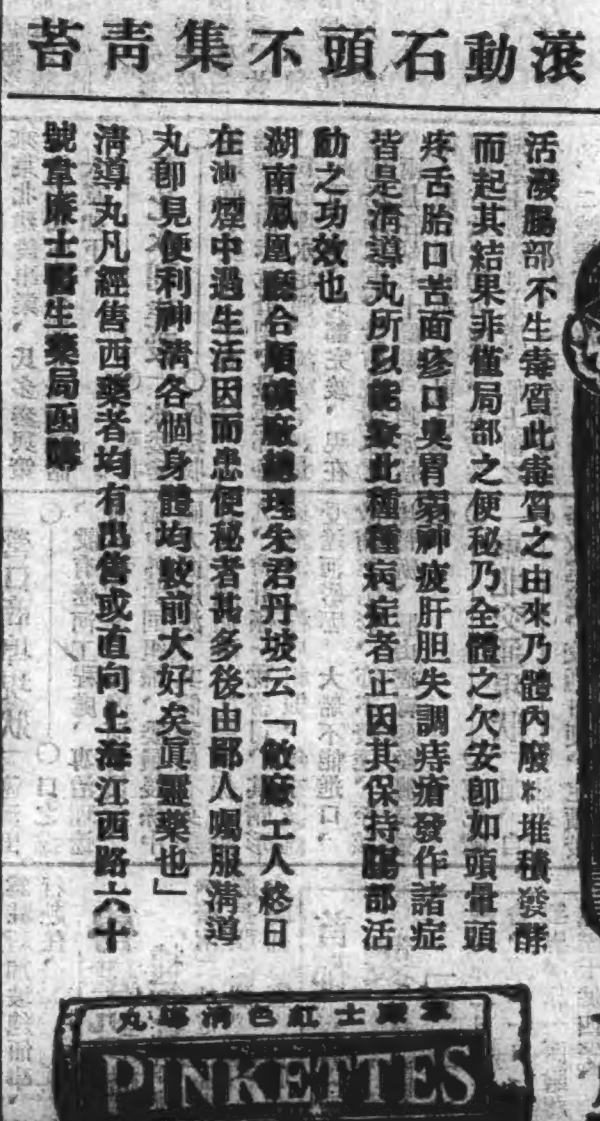 滾動石頭不集靑苔
活潑腸部不生毒質此毒質之由來乃體內廢料堆積發酵
而起其結果非僅局部之便秘乃全體之欠安卽如頭暈頭
疼舌胎口苦面疹口臭胃弱神疲肝胆失調痔瘡發作諸症
皆是淸導丸所以能療此種種病症者正因其保持腸部活
動之功效也
湖南鳳凰廳合順礦廠總理朱君丹坡云「敝廠工人終日
在油煙中過生活因而患便秘者甚多後由鄙人囑服淸導
丸卽見便利神淸各個身體均較前大好矣眞靈藥也」
淸導丸凡經售西藥者均有出售或直向上海江西路六十
號韋廉士醫生藥局函購
丸導淸色紅士廉韋
PINKETTES